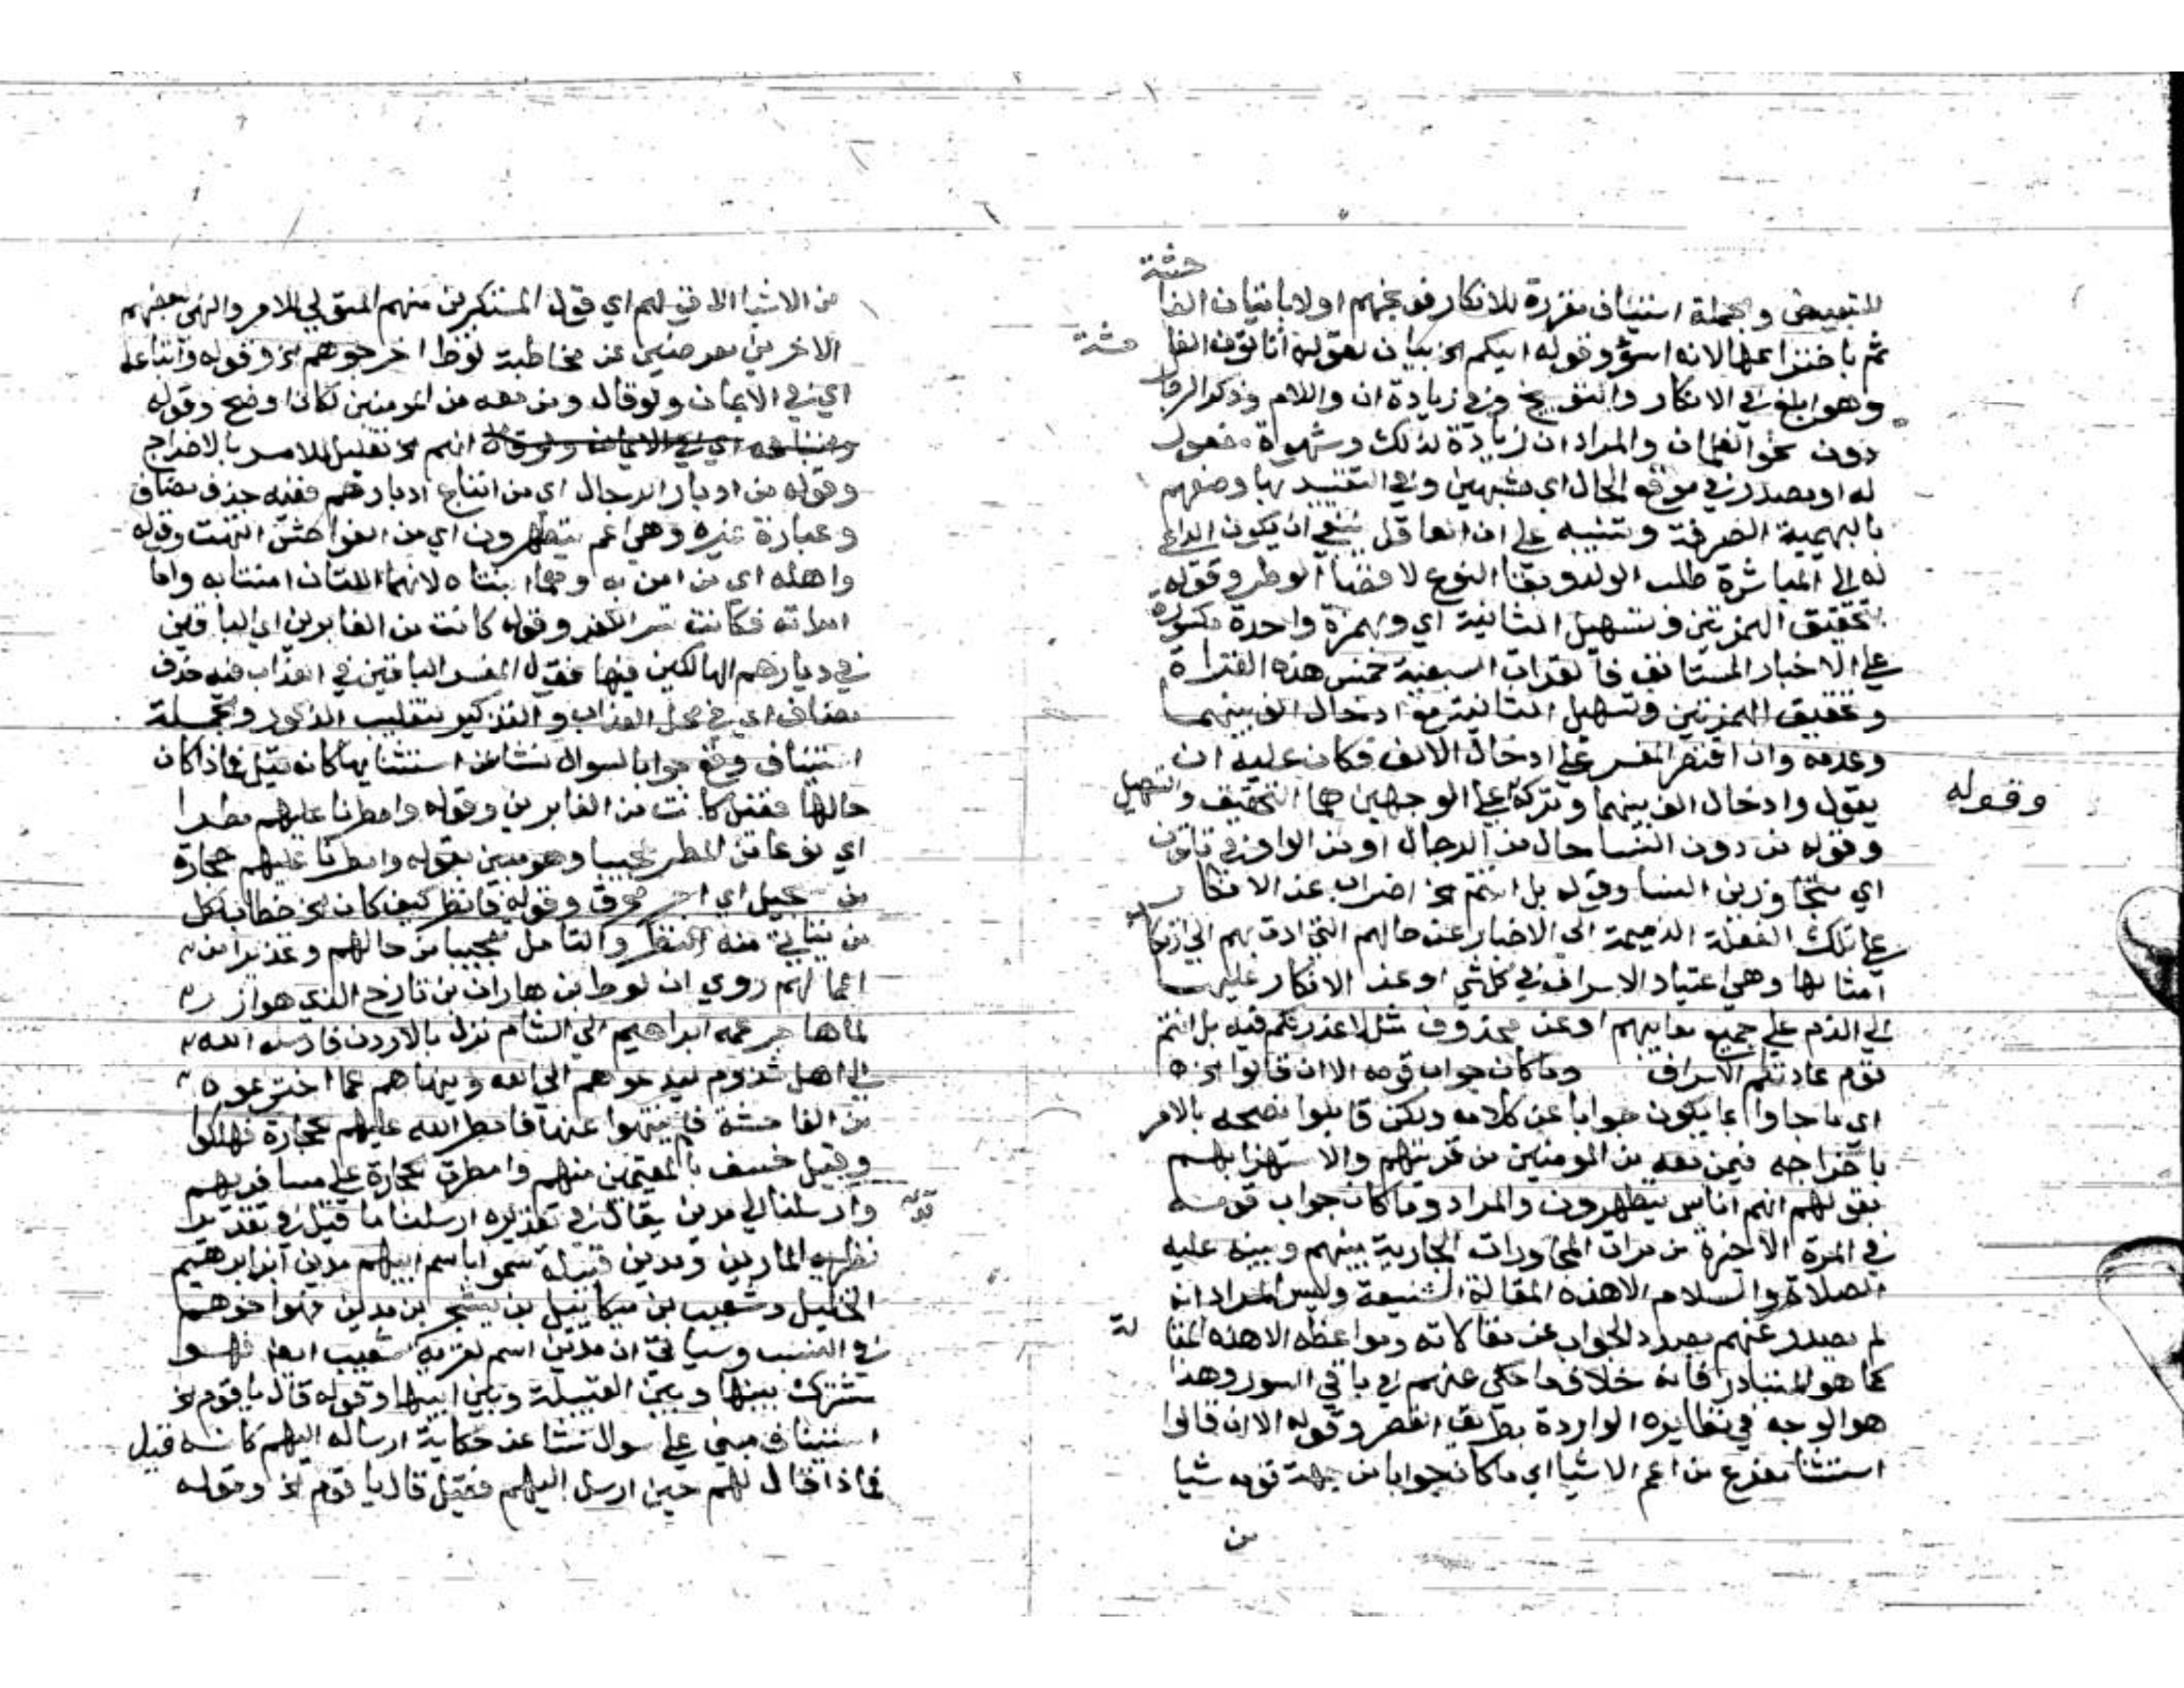 للتبعيض والجملة استيناف مقررة للانكار فوبخهم اولا باتيان الفا
حشة
ثم باختراعها لانه اسوؤ وقوله ائنكم الخ بيان لقوله أتأتون الفا
حشة
وهو ابلغ في الانكار والتوبيخ وفي زيادة ان واللام وذكر الرجال
دون نحو الغلمان والمراد ان زيادة لذلك وشهوة مفعول
له او مصدر في موقع الحال اي مشتهين وفي التقييد بها وصفهم
بالبهيمية الصرفة وتنبيه على ان العاقل ينبغي ان يكون الداعي
له الى المباشرة طلب الولد وبقاء النوع لا قضا الوطر وقوله
بتحقيق الهمزتين وتسهيل الثانية اي وبهمزة واحدة مكسورة
على الاخبار المستانف فالقرات السبعية خمس هذه القراة
وتحقيق الهمزتين وتسهيل الثانية مع ادخال الف بينهما
وعدمه وان اقتصر المفسر على ادخال الالف فكان عليه ان
يقول وادخال الف بينهما وتركه على الوجهين هما التحقيق والتسهيل
وقوله
وقوله من دون النسا حال من الرجال او من الواو في تاتون
اي متجاوزين النسا وقوله بل انتم الخ اضراب عن الانكار
على تلك الفعلة الذميمة الى الاخبار عن حالهم التي ادت بهم الى ارتكاب
امثالها وهي اعتياد الاسراف في كل شي او عن الانكار عليها
الى الذم على جميع معايبهم او عن محذوف مثل لا عذر لكم فيه بل انتم
قوم عادتكم الاسراف وما كان جواب قومه الا ان قالوا الخ
اي ما جاوا بما يكون جوابا عن كلامه ولكن قابلوا نصحه بالامر
باخراجه فيمن معه من المومنين من قريتهم والاستهزا بهم
بقولهم انهم اناس يتطهرون والمراد وما كان جواب قومه
في المرة الاخيرة من مرات المحاورات الجارية بينهم وبينه عليه
الصلاة والسلام الا هذه المقالة الشنيعة وليس المراد انه
لم يصدر عنهم بصدد الجواب عن مقالاته ومواعظه الا هذه المقا
لة
كما هو المتبادر فانه خلاف ما حكي عنهم في باقي السور وهذا
هو الوجه في نظايره الواردة بطريق القصر وقوله الا ان قالوا
استثنا مفرغ من اعم الاشيا اي ما كان جوابا من جهة قومه شيا
من
من الاشيا الا قولهم اي قول المستكبرين منهم المتولي للامر والنهي بعضهم
الاخرين معرضين عن مخاطبة لوط اخرجوهم الخ وقوله واتباعه
اي في الايمان ولو قال ومن معه من المومنين لكان اوضح وقوله
انهم الخ تعليل للامر بالاخراج
وقوله من ادبار الرجال اي من اتيان ادبارهم ففيه حذف مضاف
وعبارة غيره وهي اعم يتطهرون اي من الفواحش انتهت وقوله
واهله اي من امن به وهما ابنتاه لانهما اللتان امنتا به واما
امراته فكانت تسر الكفر وقوله كانت من الغابرين اي الباقين
في ديارهم الهالكين فيها فقول المفسر الباقين في العذاب فيه حذف
مضاف اي في محل العذاب والتذكير لتغليب الذكور والجملة
استيناف وقع جوابا لسوال نشا عن استثنايها كانه قيل فماذا كان
حالها فقيل كانت من الغابرين وقوله وامطرنا عليهم مطرا
اي نوعا من المطر عجيبا وهو مبين بقوله وامطرنا عليهم حجارة
من سجيل اي اجر محرق وقوله فانظر كيف كان الخ خطاب لكل
من يتاتى منه النظر والتامل تعجيبا من حالهم وتحذيرا من
اعمالهم روي ان لوط ابن هاران بن تارخ الذي هو ازر
لما هاجر عمه ابراهيم الى الشام نزل بالاردن فارسله الله
الى اهل سدوم ليدعوهم الى الله وينهاهم عما اخترعوه
من الفاحشة فلم ينتهوا عنها فامطر الله عليهم حجارة فهلكوا
وقيل خسف بالمقيمين منهم وامطرت الحجارة على مسافريهم
وارسلنا الى مدين يقال في تقديره ارسلنا ما قيل في تقدير
نظيره المارين ومدين قبيلة سموا باسم ابيهم مدين ابن ابرهيم
الخليل وشعيب بن ميكاييل بن يشجر ابن مدين فهو اخوهم
في النسب وسياتي ان مدين اسم لقرية شعيب ايضا فهو
مشترك بينها وبين القبيلة وبين ابيها وقوله قال يا قوم الخ
استيناف مبني على سوال نشا عن حكاية ارساله اليهم كانه قيل
فماذا قال لهم حين ارسل اليهم فقيل قال يا قوم الخ وقوله